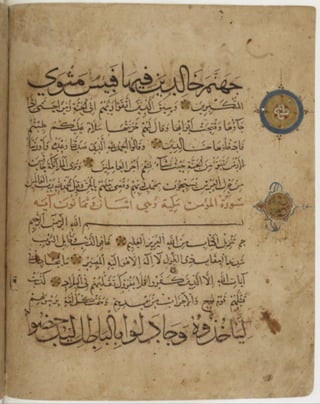 جهنم خالدين فيها فبئس مثوى
المتكبرين وسيق الذين اتقوا ربهم الى الجنة زمرا حتى اذا
جاؤها وفتحت ابوابها وقال لهم خزنتها سلام عليكم طبتم
فادخلوها خالدين وقالوا الحمد لله الذي صدقنا وعده واورثنا
الارض نتبوأ من الجنة حيث نشاء فنعم اجر العاملين وترى الملائكة حافين
من حول العرش يسبحون بحمد ربهم وقضي بينهم بالحق وقيل الحمد لله رب العالمين
سورة المؤمن مكية وهي اثنتان وثمانون آية
بسم الله الرحمن الرحيم
حم تنزيل الكتاب من الله العزيز العليم غافر الذنب وقابل التوب
شديد العقاب ذي الطول لا اله الا هو اليه المصير ما يجادل في
آيات الله الا الذين كفروا فلا يغررك تقلبهم في البلاد كذبت
قبلهم قوم نوح والاحزاب من بعدهم وهمت كل امة برسولهم
ليأخذوه وجادلوا بالباطل ليدحضوا